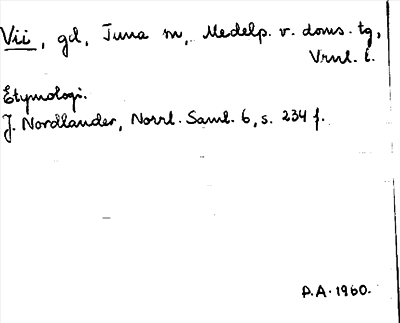 Vii, gd, Tuna sn, Medelp. v. doms. tg,
Vrnl. l.
Etymologi.
J. Nordlander, Norrl. Saml. 6, s. 234 f.
P.A. 1960.